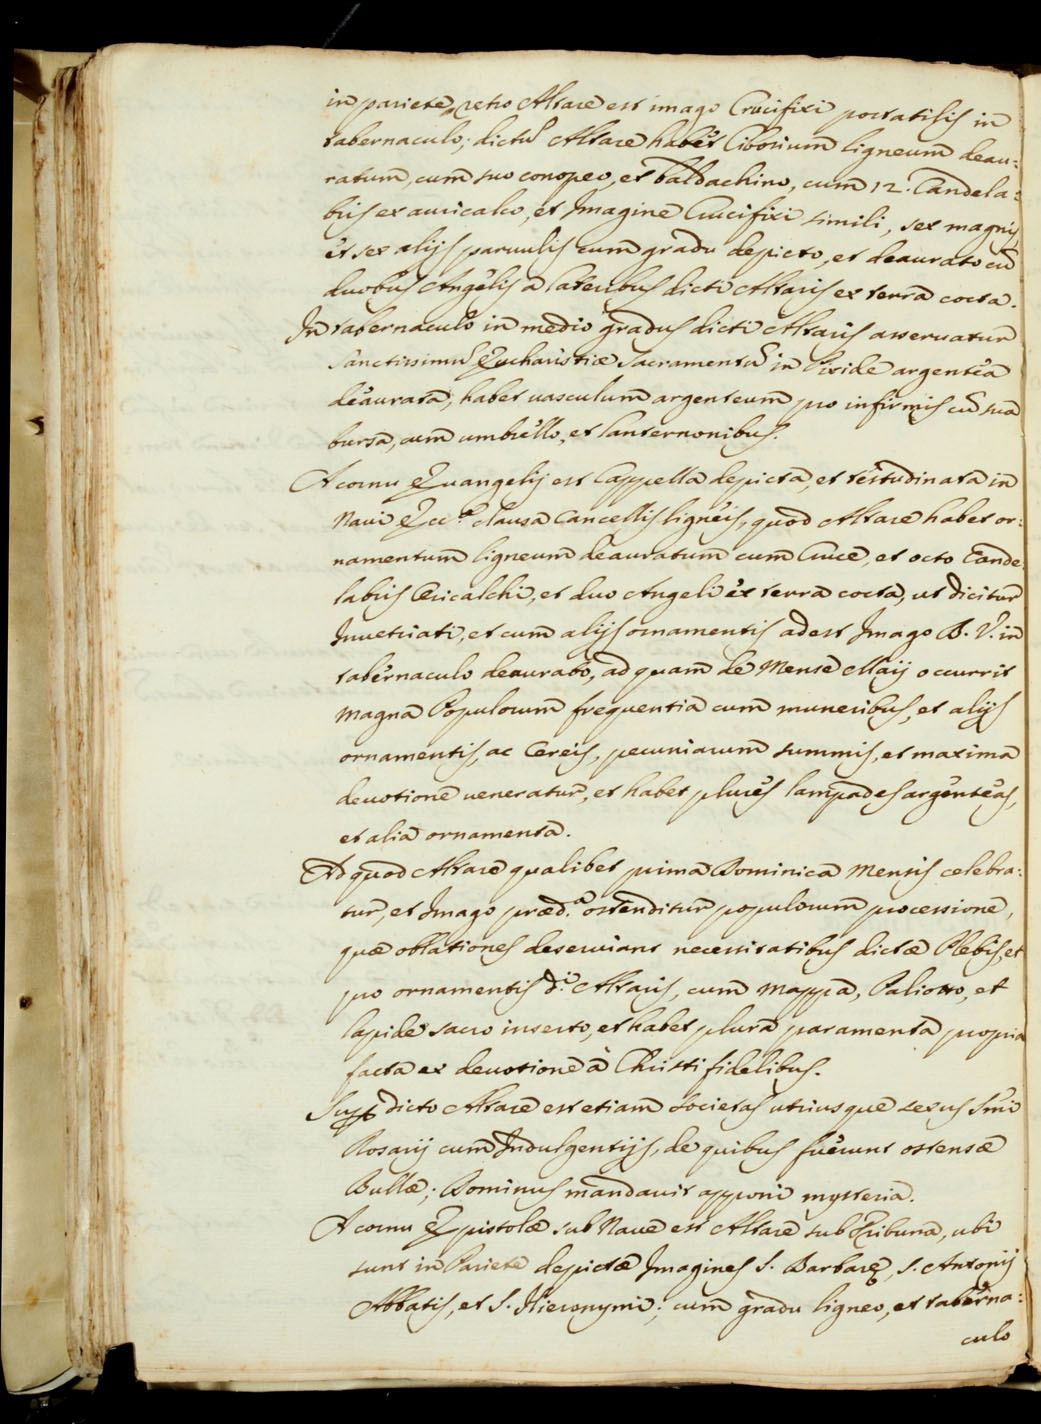 in pariete retro Altare est imago Crucifixi portatilis in
tabernaculo; dictũ Altare habet Ciborium ligneum deau:
ratum, cum suo conopeo, et baldachino, cum 12. Candela:
bris ex auricalco, et Imagine Crucifixi simili, sex magnis
et sex alijs paruulis cum gradu depicto, et deaurato cũ
duobus Angelis a lateribus dicti Altaris ex terra cocta.
In tabernaculo in medio gradus dicti Altaris asseruatur
Sanctissimũ Eucharistiæ Sacramentũ in Pixide argentea
deaurata, habet uasculum argenteum pro infirmis cũ sua
bursa, cum umbrello, et lanternonibus.
A cornu Euangelij est Cappella depicta, et testudinata in
Naui Ecc.ª clausa Cancellis ligneis, quod Altare habet or:
namentum ligneum deauratum cum Cruce, et octo Cande:
labris Oricalchi, et duo Angeli ex terra cocta, ut dicitur
Inuetriati, et cum alijs ornamentis adest Imago B. V. in
tabernaculo deaurato, ad quam de Mense Maij occurrit
magna Populorum frequentia cum muneribus, et alijs
ornamentis, ac Cereis, pecuniarum summis, et maxima
deuotione ueneratur, et habet plures lampades argenteas,
et alia ornamenta.
Ad quod Altare qualibet prima Dominica Mensis celebra:
tur, et Imago præd.ª ostenditur populorum processione,
quæ oblationes deseruiant necessitatibus dictæ Plebis, et
pro ornamentis d.i Altaris, cum Mappa, Paliotto, et
lapide sacro inserto, et habet plura paramenta propria
facta ex deuotione à Christi fidelibus.
dicto Altare est etiam societas utriusque sexus Smi
Rosarij cum Indulgentijs, de quibus fuerunt ostensæ
Bullæ; Dominus mandauit apponi mysteria.
A cornu Epistolæ sub Naue est Altare sub Tribuna, ubi
sunt in Pariete depictæ Imagines S. Barbaræ, S. Antonij
Abbatis, et S. Hieronymi; cum gradu ligneo, et taberna:
culo